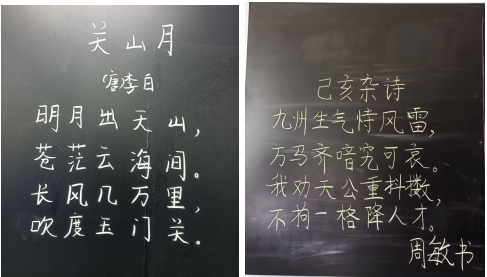 关山月
唐李白
明月出天山，
苍茫云海间。
长风几万里，
吹度玉门关。
己亥杂诗
九州生气恃风雷，
万马齐喑究可哀。
我劝天公重抖擞，
不拘一格降人才。
周敏书